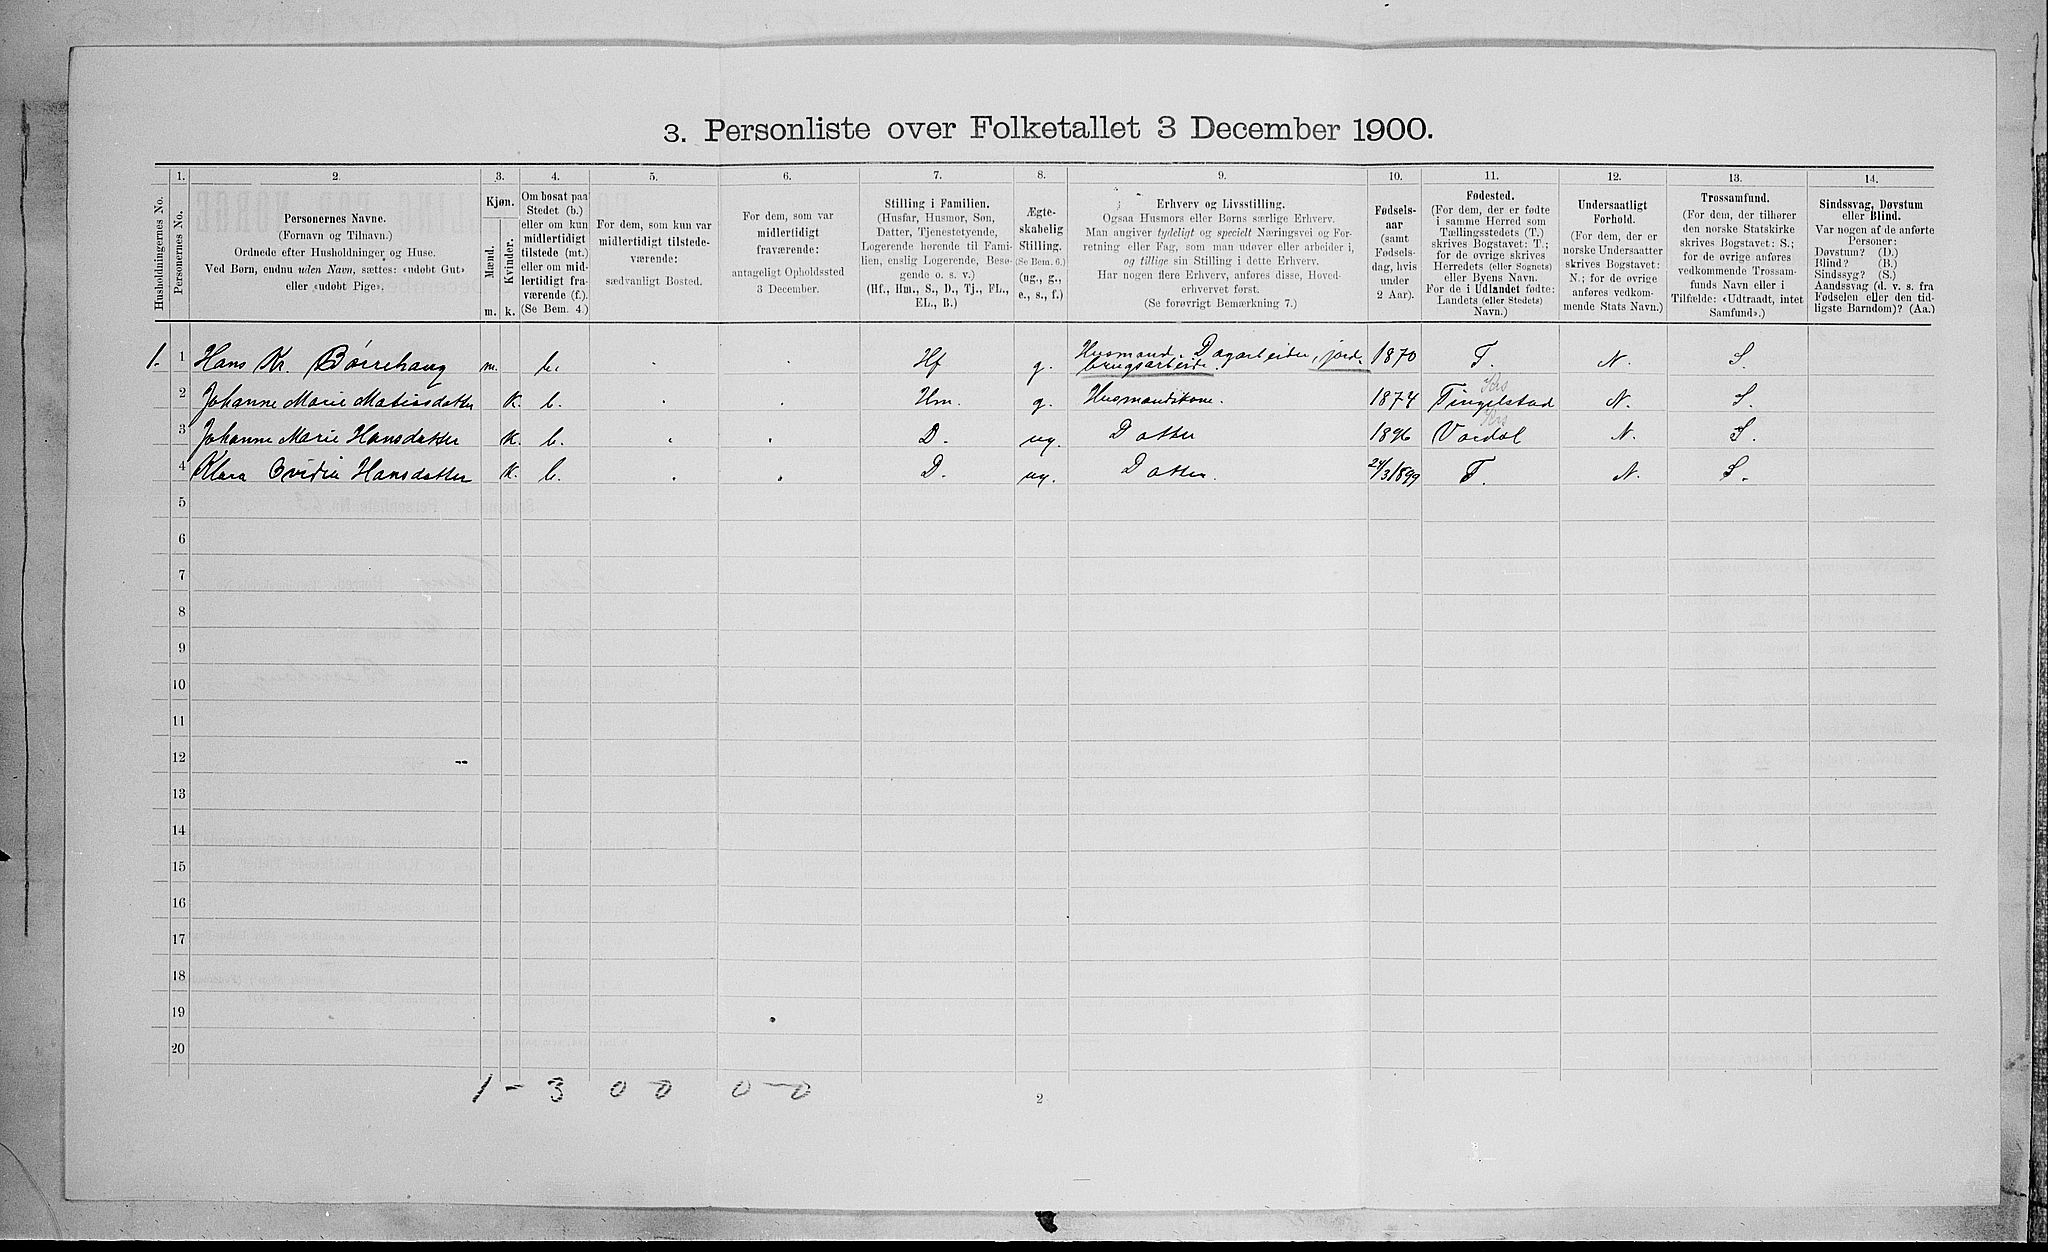 3. Personliste over Folketallet 3 December 1900.
1. 2. 3. 4. 5. 6. 7. 8. 9. 10. 11. 12. 13. 14.
Husholdningernes No.
Personernes No.
Personernes Navne.
(Fornavn og Tilnavn.)
Ordnede efter Husholdninger og Huse.
Ved Børn, endnu uden Navn, sættes: «udøbt Gut»
eller «udøbt Pige».
Kjøn.
Mænd.
Kvinder.
m. k.
Om bosat paa
Stedet (b.)
eller om kun
midlertidigt
tilstede (mt.)
eller om mid-
lertidigt fra-
værende (f.)
(Se Bem. 4.)
For dem, som kun var
midlertidigt tilstede-
værende:
sædvanligt Bosted.
For dem, som var
midlertidigt
fraværende:
antageligt Opholdssted
3 December.
Stilling i Familien.
(Husfar, Husmor, Søn,
Datter, Tjenestetyende,
Logerende hørende til Fami-
lien, enslig Logerende, Besø-
gende o. s. v.)
(Hf., Hm., S., D., Tj., FL.,
EL., B.)
Ægte-
skabelig
Stilling.
(Se Bem. 6.)
(ug., g.,
e., s., f.)
Erhverv og Livsstilling.
Ogsaa Husmors eller Børns særlige Erhverv.
Man angiver tydeligt og specielt Næringsvei og For-
retning eller Fag, som man udøver eller arbeider i,
og tillige sin Stilling i dette Erhverv.
Har nogen flere Erhverv, anføres disse, Hoved-
erhvervet først.
(Se forøvrigt Bemærkning 7.)
Fødsels-
aar
(samt
Fødsels-
dag, hvis
under
2 Aar).
Fødested.
(For dem, der er fødte
i samme Herred som
Tællingsstedets (T.)
skrives Bogstavet: T.;
for de øvrige skrives
Herredets (eller Sognets)
eller Byens Navn.
For de i Udlandet fødte:
Landets (eller Stedets)
Navn.)
Undersaatligt
Forhold.
(For dem, der er
norske Undersaatter
skrives Bogstavet:
N.; for de øvrige
anføres vedkom-
mende Stats Navn.)
Trossamfund.
(For dem, der tilhører
den norske Statskirke
skrives Bogstavet: S.;
for de øvrige anføres
vedkommende Trossam-
funds Navn eller i
Tilfælde: «Udtraadt, intet
Samfund».)
Sindssvag, Døvstum
eller Blind.
Var nogen af de anførte
Personer:
Døvstum? (D.)
Blind? (B.)
Sindssyg? (S.)
Aandssvag (d. v. s. fra
Fødselen eller den tid-
ligste Barndom)? (Aa.)
1. 1 Hans Kr. Børrehaug m. b. Hf g. Husmand. Dagarbeider, jord- 1870 T. N. S.
brugsarbeide.
Krs
2 Johanne Marie Matiasdatter k. b. Hm. g. Husmandskone. 1874 Tingelstad N. S.
Krs
3 Johanne Marie Hansdatter k. b. D. ug. Datter 1896 Vardal N. S.
4 Klara Ovidia Hansdatter k. b. D. ug. Datter. 24/3 1899 T. N. S.
5
6
7
8
9
10
11
12
13
14
15
16
17
18
19
20
1 - 3 0 0 0 - 0
2